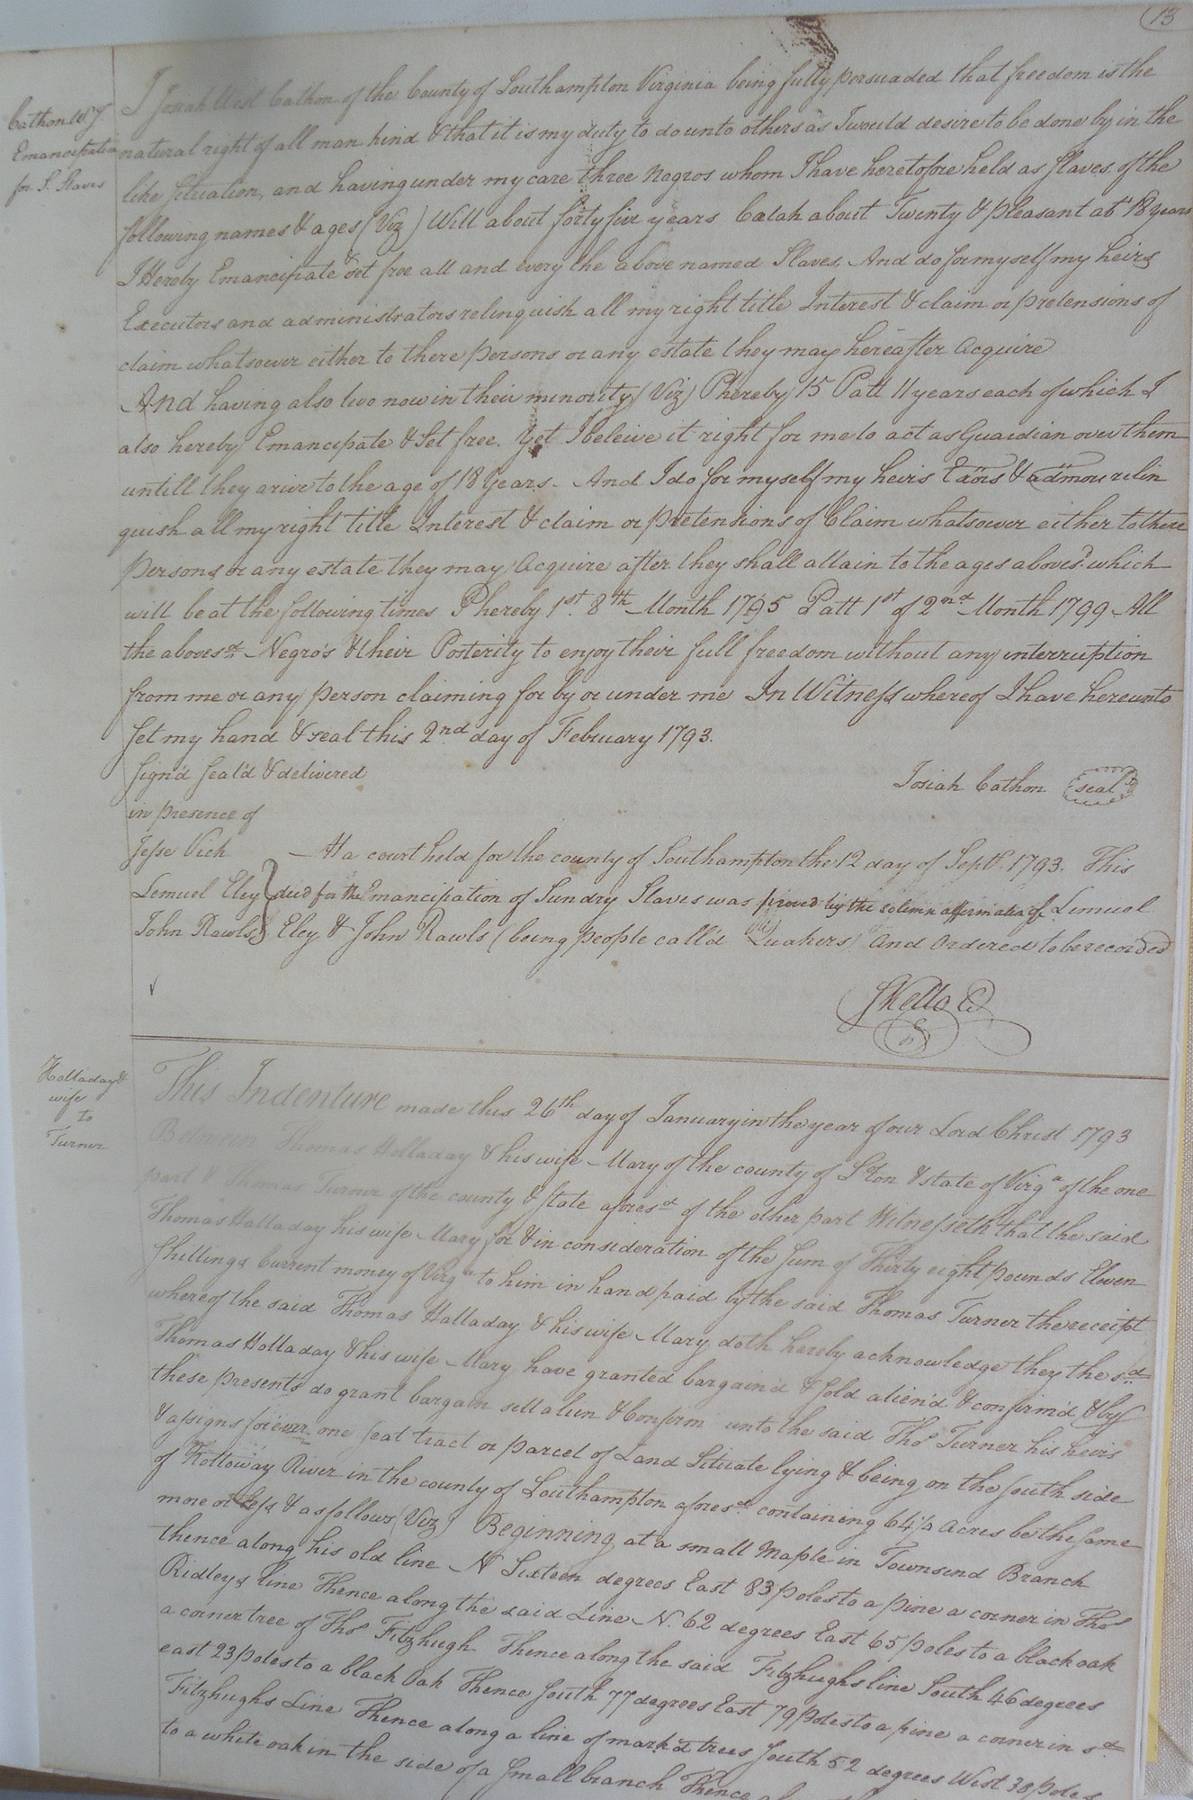 13
Cathon W J
Emancipation
for S. Slaves
I Josiah West Cathon of the County of Southampton Virginia being fully persuaded that freedom is the
natural right of all man kind & that it is my duty to do unto others as I would desire to be done by in the
like Situation, and having under my care three Negros whom I have heretofore held as Slaves of the
following names & ages (Viz) Will about forty five years Catah about Twenty & pleasant abt 18 years
I Hereby Emancipate set free all and every the above named Slaves. And do for myself my heirs
Executors and administrators relinquish all my right title Interest & claim or pretensions of
claim whatsover either to there persons or any estate they may hereafter acquire
And having also two now in their minority (Viz) Phereby 15 Patt 11 years each of which I
also hereby Emancipate & Set free. Yet I beleive it right for me to act as Guardian over them
untill they arive to the age of 18 Years. And I do for myself my heirs Exors & admors relin
quish all my right title Interest & claim or pretensions of Claim whatsover either to there
persons or any estate they may Acquire after they shall attain to the ages abovesd. which
will be at the following times Phereby 1st 8th Month 1795 Patt 1st of 2nd Month 1799 All
the abovesd Negro's & their Posterity to enjoy their full freedom without any interruption
from me or any person claiming for by or under me In Witness whereof I have hereunto
Set my hand & seal this 2nd day of February 1793.
Sign'd Seal'd & delivered
Josiah Cathon seal
in presence of
Jesse Vick
At a court held for the county of Southampton the 12 day of Septr. 1793. This
Lemuel Eley
deed for the Emancipation of Sundry Slaves was proved by the solemn affirmation of Lemuel
John Rawls
Eley & John Rawls (being people call'd Quakers) And Ordered to be recorded
S Kello C
Halladay &
wife
to
Turner
This Indenture made this 26th day of January in the year of our Lord Christ 1793
Between Thomas Halladay & his wife Mary of the county of S'ton & state of Virga of the one
part & Thomas Turner of the county & state aforesd of the other part Witnesseth that the said
Thomas Halladay his wife Mary for & in consideration of the Sum of Thirty eight pounds Eleven
Shillings Current money of Virga to him in hand paid by the said Thomas Turner the receipt
whereof the said Thomas Halladay & his wife Mary doth hereby acknowledge they the sd
Thomas Halladay & his wife Mary have granted bargain'd & sold alien'd & confirm'd & by
these presents do grant bargain sell alien & Confirm unto the said Thos Turner his heirs
& assigns forever one seat tract or parcel of Land Situate lying & being on the South side
of Nottoway River in the county of Southampton aforesd containing 64½ Acres be the same
more or less & as follows (Viz) Beginning at a small Maple in Townsend Branch
thence along his old line N Sixteen degrees East 83 poles to a pine a corner in Thos
Ridleys line Thence along the said Line N. 62 degrees East 65 poles to a black oak
a corner tree of Thos Fitzhugh Thence along the said Fitzhughs line South 46 degrees
east 23 poles to a black Oak Thence South 77 degrees East 79 poles to a pine a corner in sd
Fitzhughs Line Thence along a line of mark'd trees South 52 degrees West 38 poles
to a white oak in the side of a Small branch Thence